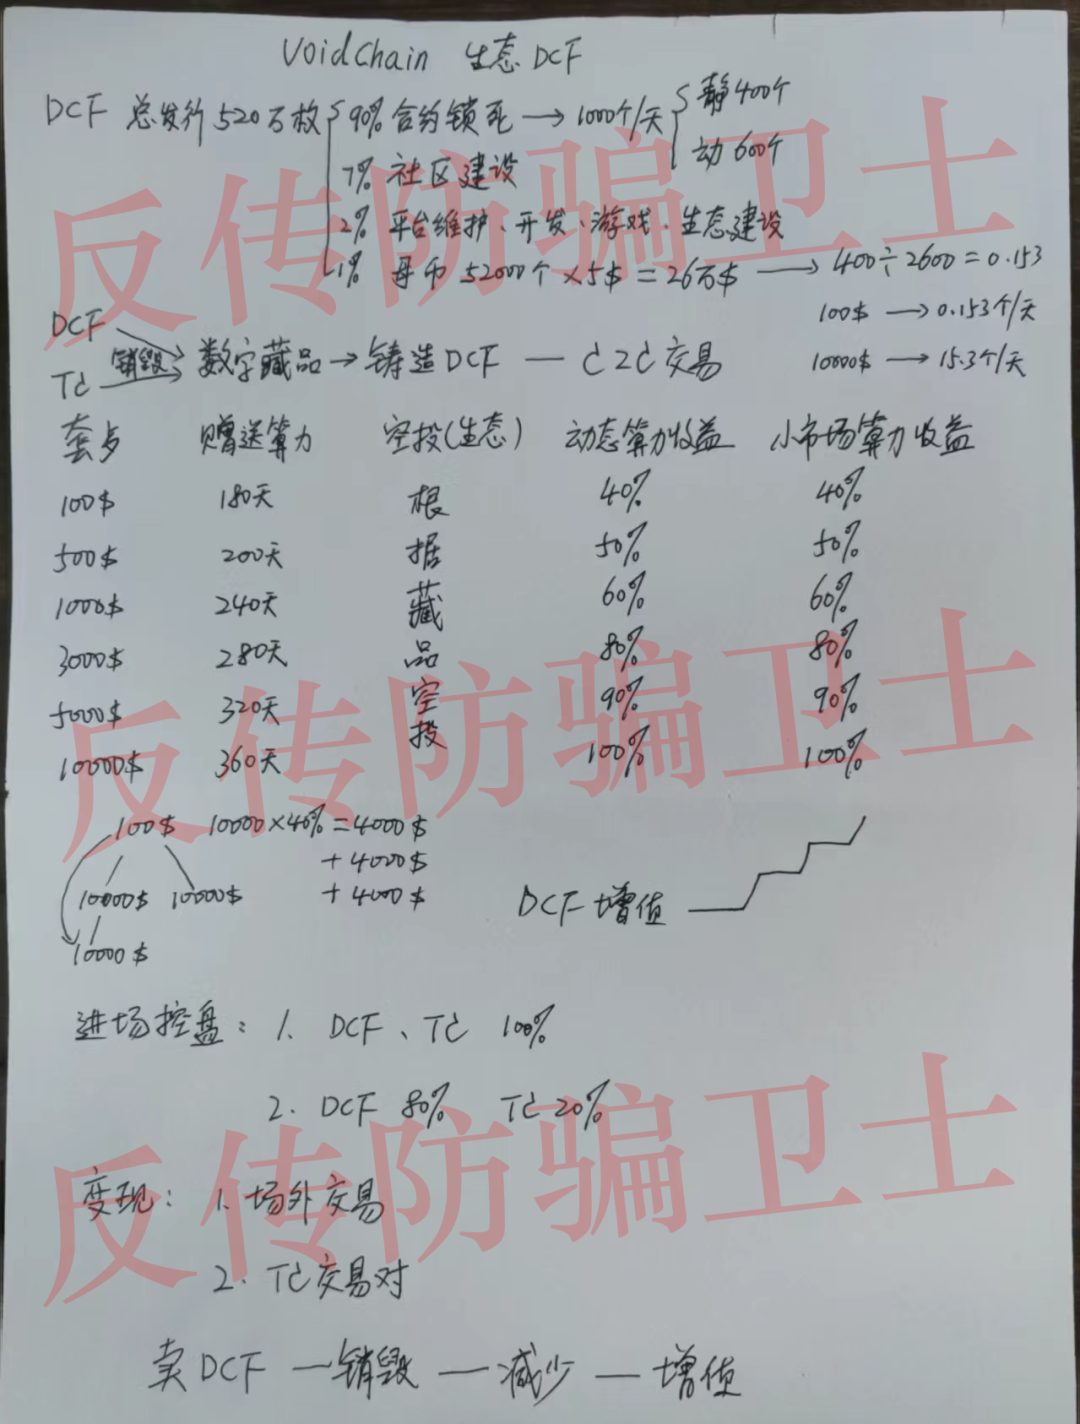 VoidChain 生态DCF
DCF 总发行520万枚 90%合约锁死→1000个/天 静400个
动600个
7% 社区建设
2% 平台维护、开发、游戏、生态建设
1% 母币 52000个×5$=26万$ → 400÷2600=0.153
100$ → 0.153个/天
10000$ → 15.3个/天
DCF
TC 销毁 数字藏品→铸造DCF — C2C交易
套餐 赠送算力 空投(生态) 动态算力收益 小市场算力收益
100$ 180天 根 40% 40%
500$ 200天 据 50% 50%
1000$ 240天 藏 60% 60%
3000$ 280天 品 80% 80%
5000$ 320天 空 90% 90%
10000$ 360天 投 100% 100%
100$ 10000×40%=4000$
+4000$
10000$ 10000$ +4000$
10000$
DCF 增值
进场控盘: 1. DCF、TC 100%
2. DCF 80% TC 20%
变现: 1. 场外交易
2. TC交易对
卖DCF — 销毁 — 减少 — 增值
反传防骗卫士
反传防骗卫士
反传防骗卫士